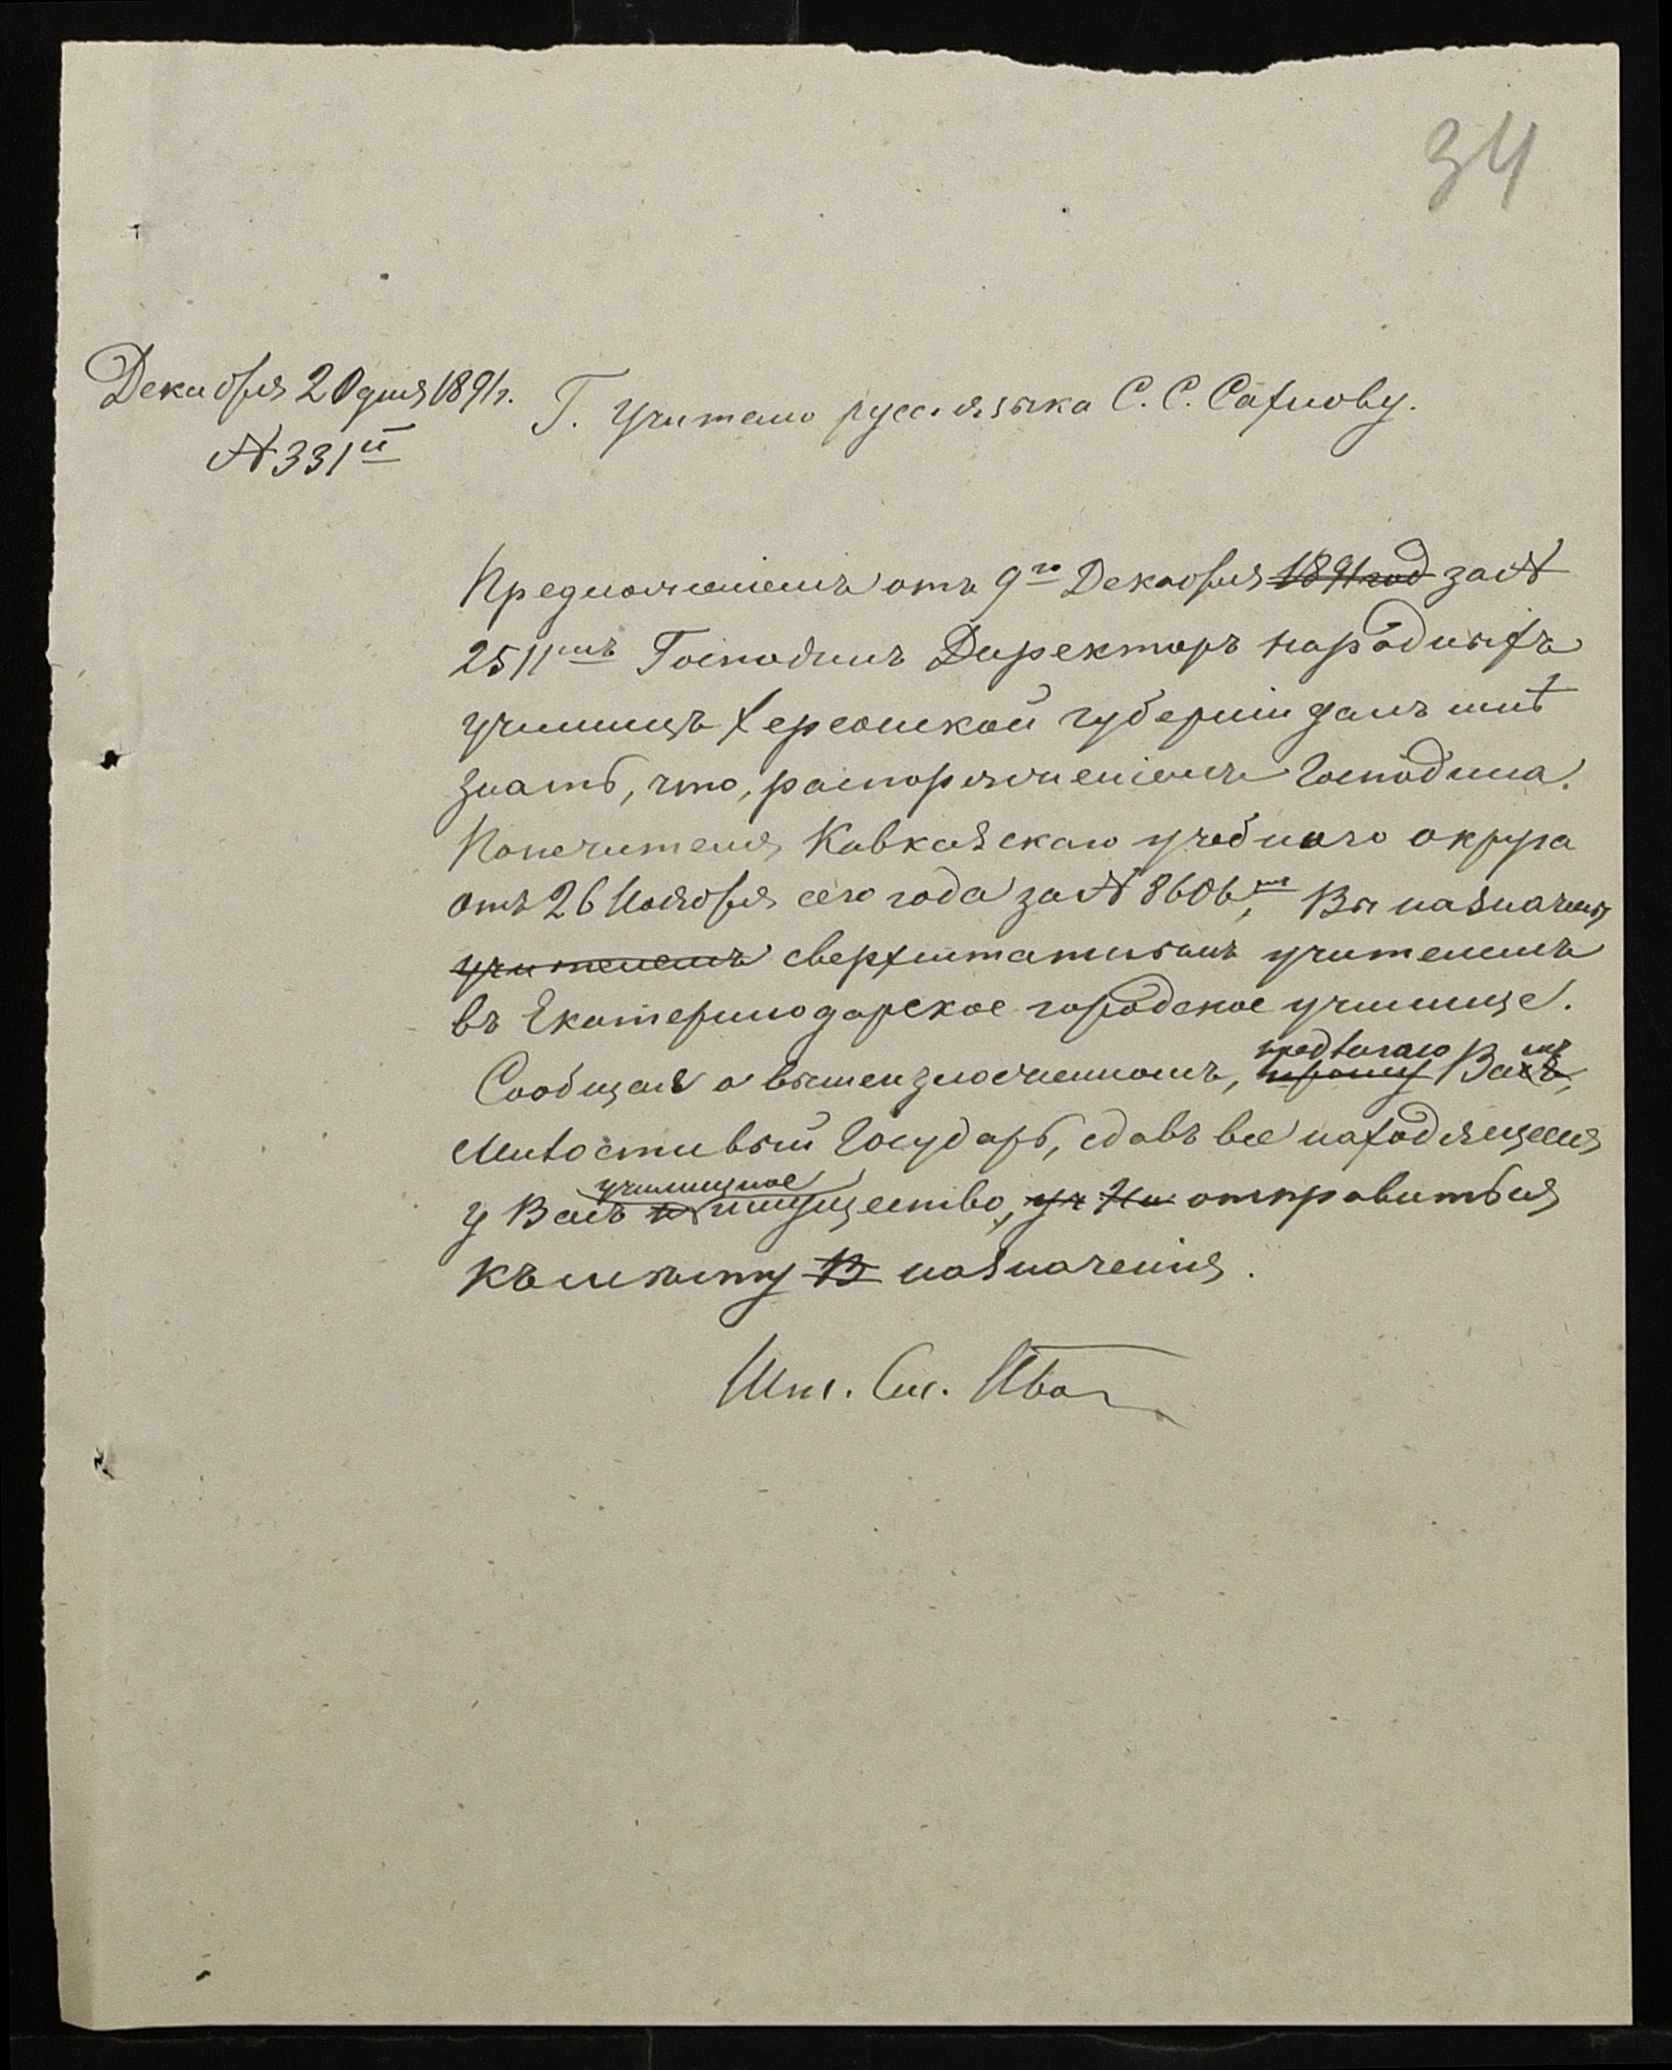 34
Декабря 20 дня 1891 г.
№ 331й
Г. Учителю русс. языка С. С. Сахнову.
Предложеніемъ отъ 9го Декабря 1891 год за №
2511мъ Господинъ Директоръ народныхъ
училищъ Херсонской губерніи далъ мнѣ
знать, что, распоряженіемъ Господина
Попечителя Кавказскаго учебнаго округа
отъ 26 Ноября сего года за № 8606, Вы назначены
учителемъ сверхштатнымъ учителемъ
въ Екатеринодарское городское училище.
предлагаю мъ
Сообщая о вышеизложенномъ, прошу Васъ,
Милостивый Государь, сдавъ все находящееся
училищное
у Васъ имущество, уч На отправиться
къ мѣсту В назначенія.
Шт. См. Ива